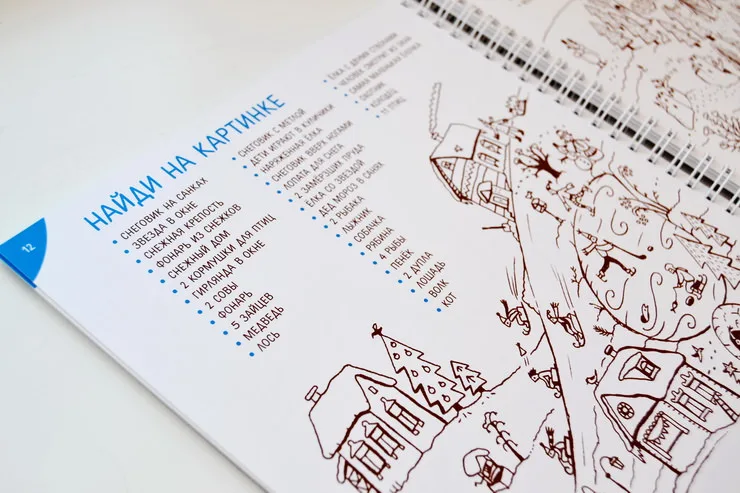 НАЙДИ НА КАРТИНКЕ
• СНЕГОВИК НА САНКАХ
• ЗВЕЗДА В ОКНЕ
• СНЕЖНАЯ КРЕПОСТЬ
• ФОНАРЬ ИЗ СНЕЖКОВ
• СНЕЖНЫЙ ДОМ
• 2 КОРМУШКИ ДЛЯ ПТИЦ
• ГИРЛЯНДА В ОКНЕ
• 2 СОВЫ
• ФОНАРЬ
• 5 ЗАЙЦЕВ
• МЕДВЕДЬ
• ЛОСЬ
• СНЕГОВИК С МЕТЛОЙ
• ДЕТИ ИГРАЮТ В КУЛИЧИКИ
• НАРЯЖЕННАЯ ЁЛКА
• СНЕГОВИК ВВЕРХ НОГАМИ
• ЛОПАТА ДЛЯ СНЕГА
• 2 ЗАМЁРЗШИХ ПРУДА
• ЁЛКА СО ЗВЕЗДОЙ
• ДЕД МОРОЗ В САНЯХ
• 2 РЫБАКА
• ЛЫЖНИК
• СОБАЧКА
• РЯБИНА
• 4 РЫБЫ
• ПЕНЁК
• 2 ДУПЛА
• ЛОШАДЬ
• ВОЛК
• КОТ
• ЁЛКА С ДВУМЯ СТВОЛАМИ
• ЧЕЛОВЕК СМОТРИТ ИЗ ОКНА
• САМАЯ МАЛЕНЬКАЯ
• ОХОТНИК
• КОЛОДЕЦ
• 11 ПТИЦ
12